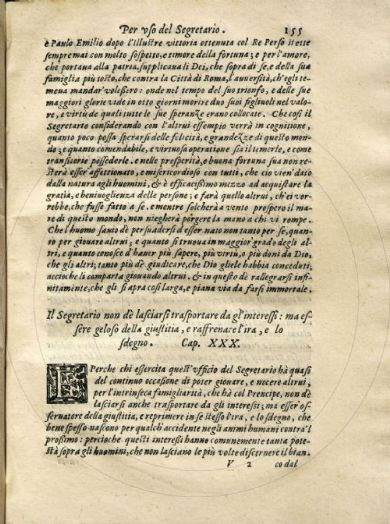 Per vso del Segretario. 155
è Paulo Emilio dopo l'Illustre vittoria ottenuta col Re Perso il ette
sempre mai con molto sospetto, e timore della fortuna; e per l'amore,
che portaua alla patria, supplicaua li Dei, che sopra di se, e della sua
famiglia più tosto, che contra la Città di Roma, l'auuersità, ch'egli te-
meua mandar' volessero: onde nel tempo del suo trionfo, e delle sue
maggiori glorie vide in esto giorni morire duo suoi figliuoli nel valo-
re, e virtù de quali tutte le sue speranze erano collocate. Che così il
Segretario considerando con l'altrui essempio verrà in cognitione,
quanto poco possa fidarsi delle felicità, e grandezze di questo mon-
do; e quanto comendabile, e virtuosa operatione sia il temerle, e come
transitorie possederle. e nelle prosperità, e buona fortuna sua non re-
sterà esser affettionato, e misericordioso con tutti, che ciò vien' dato
dalla natura agli huomini, & è efficacissimo mezzo ad acquistare la
gratia, e beniuoglienza delle persone; e farà quello altrui, ch'ei vor-
rebbe, che fusse fatto à se. e mentre solcherà vento prospero il ma-
re di questo mondo, non niegherà porgere la mano à chi vi rompe.
Che l'huomo sauio dè persuadersi d'esser nato non tanto per se, quan-
to per giouare altrui, e quanto si truoua in maggior grado degli al-
tri, e quanto conosce d'hauer più sapere, più virtù, e più doni da Dio,
che gli altri; tanto più dè giudicare, che Dio gliele habbia conceduti,
acciò che li comparta giouando altrui. & in questo dè rallegrarsi infi-
nitamente, che gli s'apra così larga, e piana via da farsi immortale.
Il Segretario non dè lasciarsi trasportare da gl'interessi: ma es-
sere geloso della giustitia, e raffrenare l'ira, e lo
sdegno. Cap. XXX.
Perche chi esercita quest'vfficio del Segretario hà quasi
del continuo occasione di poter giouare, e nocere altrui,
per l'intrinseca famigliarità, che hà col Prencipe, non dè
lasciarsi anche trasportare da gli interessi; ma esser' os-
seruatore della giustitia, e reprimere in se stesso l'ira, e lo sdegno, che
bene spesso nascono per qualch'accidente negli animi humani contra'l
prossimo: percioche questi interessi hanno communemente tanta pote-
stà sopra gli huomini, che non lasciano le più volte discernere il bian-
V 2 co dal